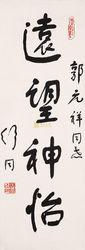 遠望神怡
郭元祥同志
舒同